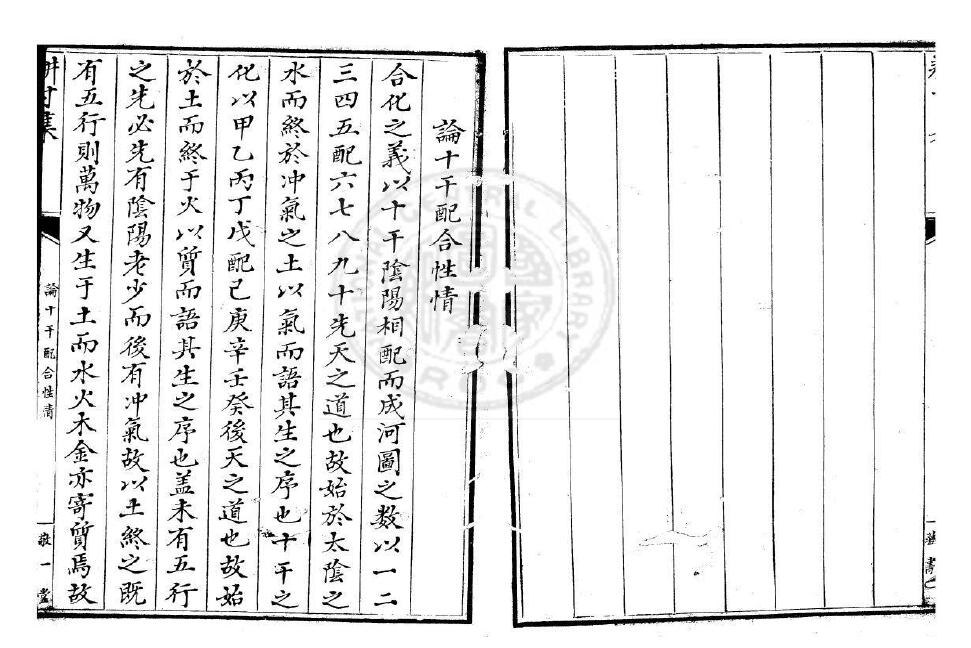 論十干配合性情
合化之義以十干陰陽相配而成河圖之數以一二
三四五配六七八九十先天之道也故始於太陰之
水而終於冲氣之土以氣而語其生之序也十干之
化以甲乙丙丁戊配己庚辛壬癸後天之道也故始
於土而終于火以質而語其生之序也盖未有五行
之先必先有陰陽老少而後有冲氣故以土終之既
有五行則萬物又生于土而水火木金亦寄質焉故
論十干配合性情
敬一堂
CENTRAL LIBRARY